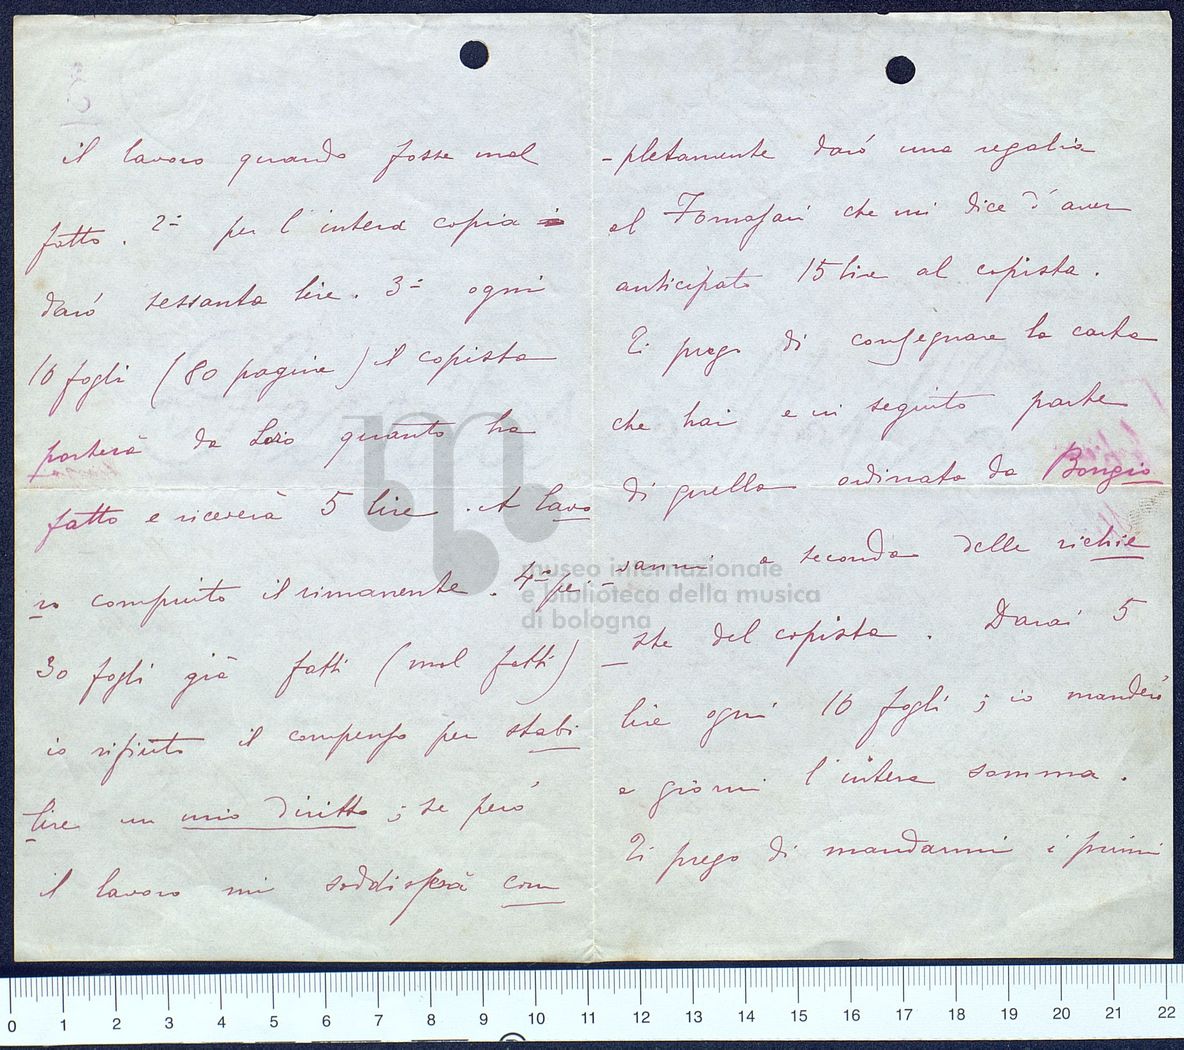 il lavoro quando fosse mal
fatto. 2º per l'intera copia
darò sessanta lire. 3º ogni
16 fogli (80 pagine) il copista
porterà da Loro quanto ha
fatto e riceverà 5 lire. A lavo
ro compiuto il rimanente. 4º pei
30 fogli già fatti (mal fatti)
io rifiuto il compenso per stabi
lire un mio diritto; se però
il lavoro mi soddisferà com
-pletamente darò una regalia
al Fornasari che mi dice d'aver
anticipato 15 lire al copista.
Ti prego di consegnare la carta
che hai e in seguito parte
di quella ordinata da Bongio
vanni a seconda delle richie
ste del copista. Darai 5
lire ogni 16 fogli; io manderò
a giorni l'intera somma.
Ti prego di mandarmi i primi
museo internazionale
e biblioteca della musica
di bologna
0 1 2 3 4 5 6 7 8 9 10 11 12 13 14 15 16 17 18 19 20 21 22